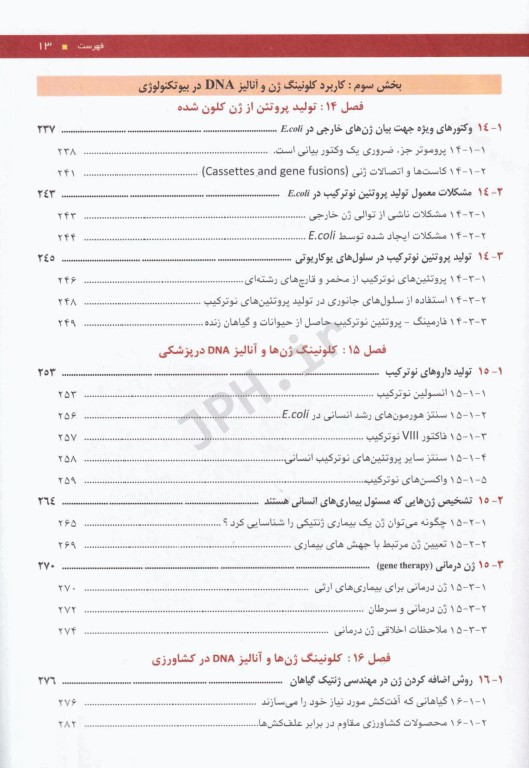 فهرست ▪ ۱۳
بخش سوم : کاربرد کلونینگ ژن و آنالیز DNA در بیوتکنولوژی
فصل ۱۴ : تولید پروتئن از ژن کلون شده
۱۴-۱ وکتورهای ویژه جهت بیان ژن‌های خارجی در E.coli ........ ۲۳۷
۱۴-۱-۱ پروموتر جزء ضروری یک وکتور بیانی است. ........ ۲۳۸
۱۴-۱-۲ کاست‌ها و اتصالات ژنی (Cassettes and gene fusions) ........ ۲۴۱
۱۴-۲ مشکلات معمول تولید پروتئین نوترکیب در E.coli ........ ۲۴۳
۱۴-۲-۱ مشکلات ناشی از توالی ژن خارجی ........ ۲۴۳
۱۴-۲-۲ مشکلات ایجاد شده توسط E.coli ........ ۲۴۴
۱۴-۳ تولید پروتئین نوترکیب در سلول‌های یوکاریوتی ........ ۲۴۵
۱۴-۳-۱ پروتئین‌های نوترکیب از مخمر و قارچ‌های رشته‌ای ........ ۲۴۶
۱۴-۳-۲ استفاده از سلول‌های جانوری در تولید پروتئین‌های نوترکیب ........ ۲۴۸
۱۴-۳-۳ فارمینگ - پروتئین نوترکیب حاصل از حیوانات و گیاهان زنده ........ ۲۴۹
فصل ۱۵ : کلونینگ ژن‌ها و آنالیز DNA درپزشکی
۱۵-۱ تولید داروهای نوترکیب ........ ۲۵۳
۱۵-۱-۱ انسولین نوترکیب ........ ۲۵۳
۱۵-۱-۲ سنتز هورمون‌های رشد انسانی در E.coli ........ ۲۵۶
۱۵-۱-۳ فاکتور VIII نوترکیب ........ ۲۵۷
۱۵-۱-۴ سنتز سایر پروتئین‌های نوترکیب انسانی ........ ۲۵۸
۱۵-۱-۵ واکسن‌های نوترکیب ........ ۲۵۹
۱۵-۲ تشخیص ژن‌هایی که مسئول بیماری‌های انسانی هستند ........ ۲۶۴
۱۵-۲-۱ چگونه می‌توان ژن یک بیماری ژنتیکی را شناسایی کرد ؟ ........ ۲۶۵
۱۵-۲-۲ تعیین ژن مرتبط با جهش های بیماری ........ ۲۶۹
۱۵-۳ ژن درمانی (gene therapy) ........ ۲۷۰
۱۵-۳-۱ ژن درمانی برای بیماری‌های ارثی ........ ۲۷۰
۱۵-۳-۲ ژن درمانی و سرطان ........ ۲۷۲
۱۵-۳-۳ ملاحظات اخلاقی ژن درمانی ........ ۲۷۴
فصل ۱۶ : کلونینگ ژن‌ها و آنالیز DNA در کشاورزی
۱۶-۱ روش اضافه کردن ژن در مهندسی ژنتیک گیاهان ........ ۲۷۶
۱۶-۱-۱ گیاهانی که آفت‌کش مورد نیاز خود را می‌سازند ........ ۲۷۶
۱۶-۱-۲ محصولات کشاورزی مقاوم در برابر علف‌کش‌ها ........ ۲۸۲
JPH.ir